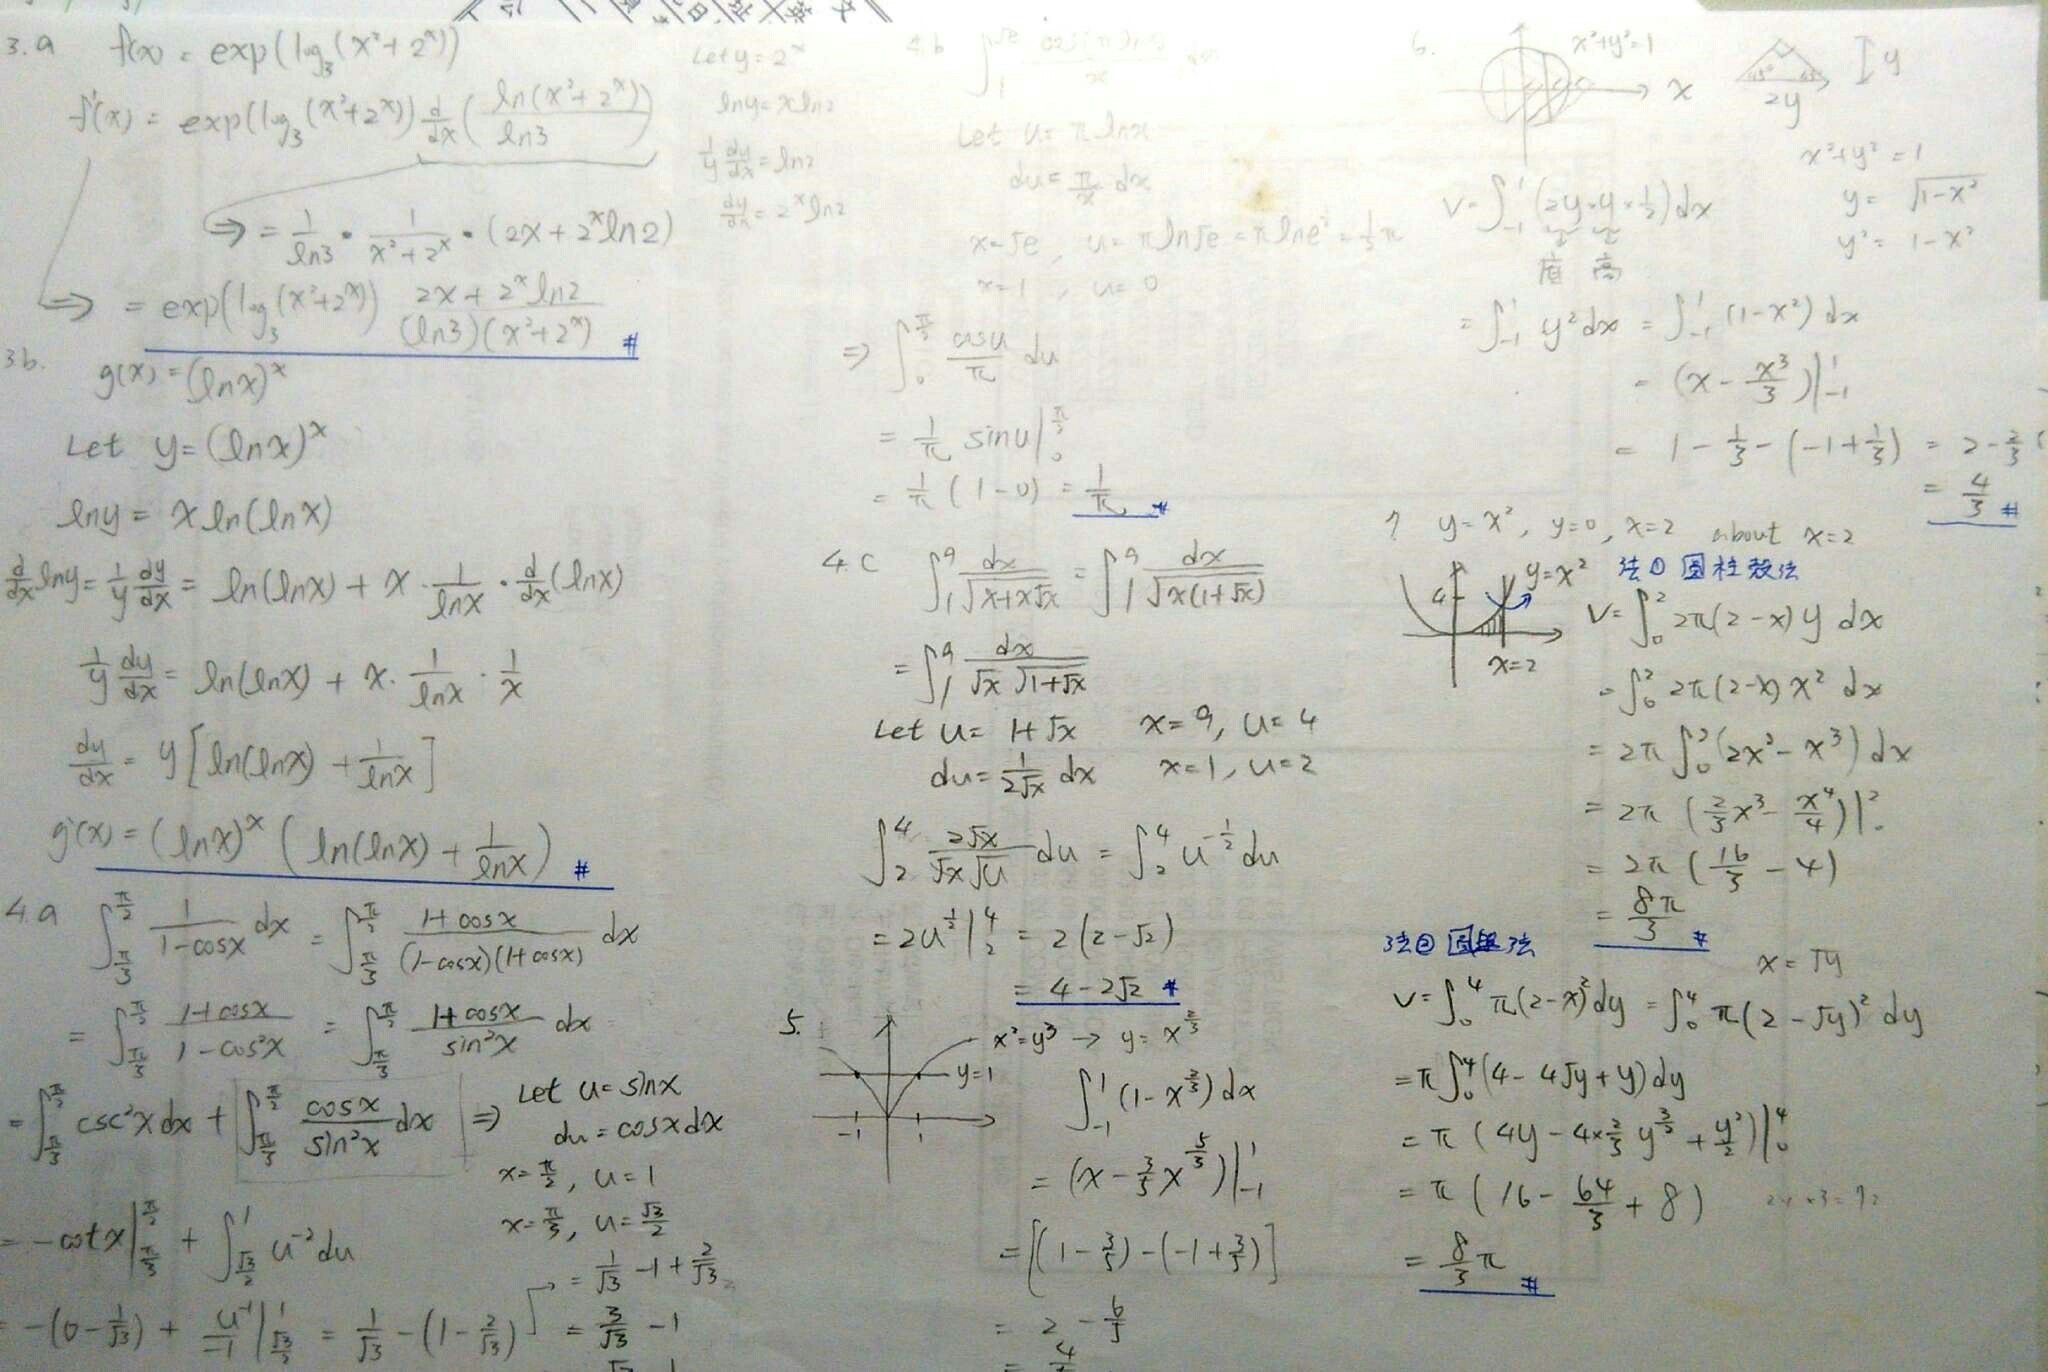 3.a f(x) = exp(log₃(x²+2ˣ))
f'(x) = exp(log₃(x²+2ˣ)) d/dx (ln(x²+2ˣ)/ln3)
⇒ = 1/ln3 · 1/(x²+2ˣ) · (2x+2ˣln2)
⇒ = exp(log₃(x²+2ˣ)) (2x+2ˣln2)/((ln3)(x²+2ˣ)) #
Let y = 2ˣ
lny = xln2
1/y dy/dx = ln2
dy/dx = 2ˣln2
3b. g(x) = (lnx)ˣ
Let y = (lnx)ˣ
lny = x ln(lnx)
d/dx lny = 1/y dy/dx = ln(lnx) + x · 1/lnx · d/dx(lnx)
1/y dy/dx = ln(lnx) + x · 1/lnx · 1/x
dy/dx = y[ln(lnx) + 1/lnx]
g'(x) = (lnx)ˣ (ln(lnx) + 1/lnx) #
4.a ∫_{π/3}^{π/2} 1/(1-cosx) dx = ∫_{π/3}^{π/2} (1+cosx)/((1-cosx)(1+cosx)) dx
= ∫_{π/3}^{π/2} (1+cosx)/(1-cos²x) = ∫_{π/3}^{π/2} (1+cosx)/sin²x dx
= ∫_{π/3}^{π/2} csc²x dx + ∫_{π/3}^{π/2} cosx/sin²x dx ⇒ Let u = sinx
du = cosxdx
x = π/2, u = 1
x = π/3, u = √3/2
= -cotx|_{π/3}^{π/2} + ∫_{√3/2}^{1} u⁻² du
= -(0 - 1/√3) + u⁻¹/-1 |_{√3/2}^{1} = 1/√3 - (1 - 2/√3)
= 1/√3 - 1 + 2/√3
= 3/√3 - 1
4.b ∫_1^{√e} cos(πlnx)/x dx
Let u = πlnx
du = π/x dx
x = √e, u = πln√e = πlne^½ = ½π
x = 1, u = 0
⇒ ∫_0^{π/2} cosu/π du
= 1/π sinu|_0^{π/2}
= 1/π (1-0) = 1/π #
4.c ∫_1^9 dx/√(x+x√x) = ∫_1^9 dx/√(x(1+√x))
= ∫_1^9 dx/(√x √(1+√x))
Let u = 1+√x x = 9, u = 4
du = 1/(2√x) dx x = 1, u = 2
∫_2^4 2√x/(√x√u) du = ∫_2^4 u^{-1/2} du
= 2u^{1/2}|_2^4 = 2(2-√2)
= 4-2√2 #
5. x²=y³ → y = x^{2/3}
y=1
-1 1
∫_{-1}^1 (1-x^{2/3}) dx
= (x - 3/5 x^{5/3})|_{-1}^1
= [(1-3/5)-(-1+3/5)]
= 2 - 6/5
6. x²+y²=1
x
45° 45° y
2y
x²+y² = 1
y = √(1-x²)
y² = 1-x²
V = ∫_{-1}^1 (2y×y×½) dx
底 高
= ∫_{-1}^1 y²dx = ∫_{-1}^1 (1-x²) dx
= (x - x³/3)|_{-1}^1
= 1 - 1/3 - (-1+1/3) = 2 - 2/3
= 4/3 #
7 y=x², y=0, x=2 about x=2
法① 圓柱殼法
4 y=x²
x=2
V = ∫_0^2 2π(2-x) y dx
= ∫_0^2 2π(2-x) x² dx
= 2π ∫_0^2 (2x²-x³) dx
= 2π (2/3 x³ - x⁴/4)|_0^2
= 2π (16/3 - 4)
= 8π/3 #
法② 圓盤法
x = √y
V = ∫_0^4 π(2-x)² dy = ∫_0^4 π(2-√y)² dy
= π∫_0^4 (4-4√y+y) dy
= π (4y - 4×2/3 y^{3/2} + y²/2)|_0^4
= π (16 - 64/3 + 8)
= 8/3 π #